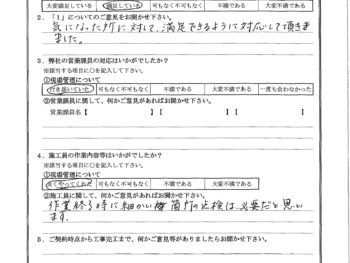 大変満足している 満足している 可も なく不可もなく 不満である 大変不満である
2.「1」についてのご意見をお聞かせ下さい。
気になった所に対して、満足できるように対応して頂きま
ました。
3.弊社の営業課員の対応はいかがでしたか？
※該当する項目に○を記入して下さい。
①現場管理について
行き届いていた 可もなく不可もなく 不満である 大変不満である 一度も会わなかった
②営業課員に関して、何かご意見があればお聞かせ下さい。
営業課員名【 】【 】【 】
4.施工員の作業内容等はいかがでしたか？
※該当する項目に○を記入して下さい。
①現場管理について
良くやってくれた 可もなく不可もなく 不満である 大変不満である
②施工員に関して、何かご意見があればお聞かせ下さい。
作業終る時に細かい箇所の点検は、必要だと思い
ます。
5.ご契約時点から工事完工まで、何かご意見等がありましたらお聞かせ下さい。